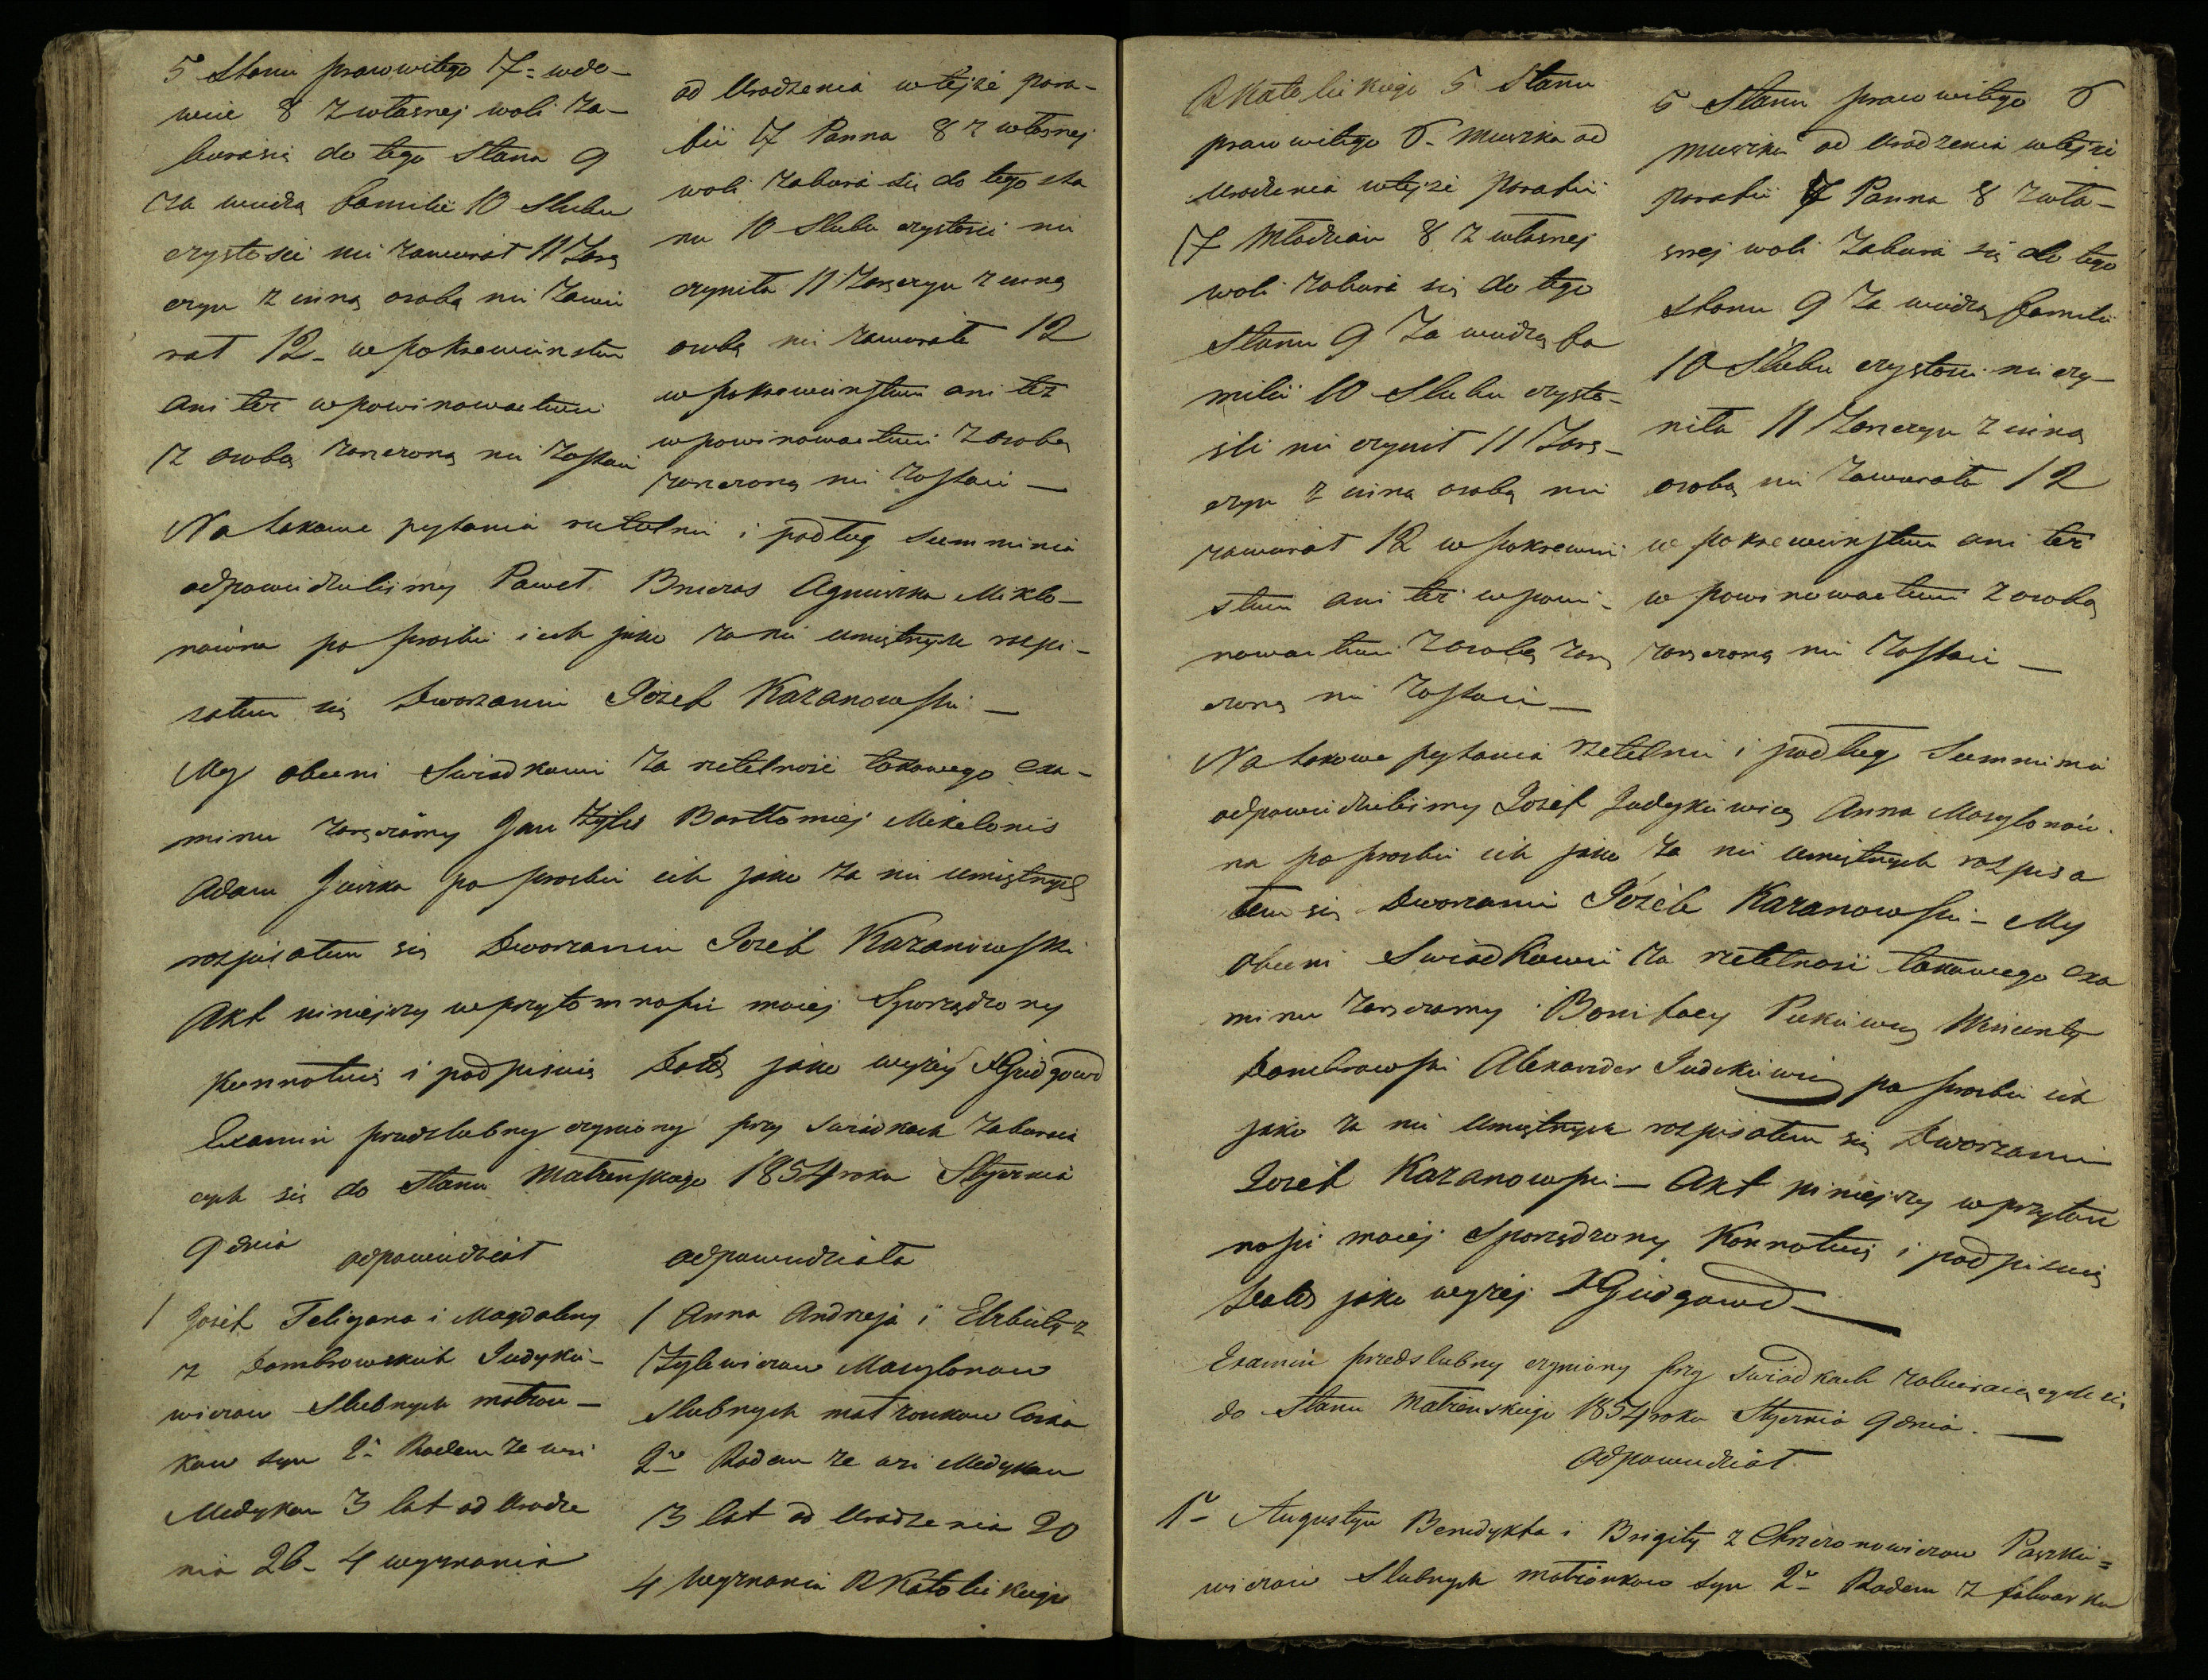 5 Stanu prawowitego 7= wdo-
wiec 8 z własnej woli za-
biera się do tego Stanu 9
za wiedzą familii 10 Slubu
czystosci nie zawierał 11 Zarę
czyn z inną osobą nie zawie
rał 12- w pokrewienstwie
ani też w powinowactwie
z osobą zaręczoną nie zostaie
od Urodzenia w tejże para-
fii 7 Panna 8 z własnej
woli zabiera się do tego sta
nu 10 Slubu czystosci nie
czyniła 11 Zaręczyn z inną
osobą nie zawierała 12
w pokrewienstwie ani też
w powinowactwie z osobą
zaręczoną nie zostaie —
Na takowe pytania rzetelnie i podług summienia
odpowiedzielismy Paweł Agnieszka Mikło-
nowna po prosbie ich jako za nie umiętnych rozpi-
sałem się Dworzanin Józef Kazanowski —
My obecni Swiadkowie za rzetelność takowego exa-
minu zaręczamy Jan Żylis Bartłomiej Mikelonis
Adam Juszka po prosbie ich jako za nie umiętnych
rozpisałem się Dworzanin Jozef Kazanowski
Akt niniejszy w przytomnosci moiej Sporządzony
konnotuię i podpisuię Datą jako wyżej X Giedgowd
Examin przedslubny czyniony przy swiadkach zabieraią
cych się do Stanu Małżenskiego 1854 roku Stycznia
9 dnia odpowiedział odpowiedziała
1 Jozef Feligana i Magdaleny
z Dombrowskich Judyki-
wiczow Slubnych małżon-
kow syn 2- Rodem ze wsi
Medykan 3 lat od Urodze
nia 26- 4 wyznania
1 Anna Andrzeja i Elzbiety z
Żylewiczow Masylonow
Slubnych małzonkow Corka
2- Rodem ze wsi Medykan
3 lat od Urodzenia 20
4 Wyznania R Katolickiego
R Katolickiego 5 Stanu
prawowitego 6- mieszka od
Urodzenia w tejże Parafii
7 Młodzian 8 z własnej
woli zabiera się do tego
Stanu 9 Za wiedzą fa
milii 10 Slubu czysto-
sci nie czynił 11 Zarę-
czyn z inną osobą nie
zawierał 12 w pokrewień
stwie ani też w powi-
nowactwie z osobą zarę
czoną nie zostaie —
5 Stanu prawowitego 6
mieszka od Urodzenia w tejże
parafii 7 Panna 8 z wła-
snej woli zabiera się do tego
stanu 9 Za wiedzą familii
10 Slubu czystosci nie czy-
niła 11 Zaręczyn z inną
osobą nie zawierała 12
w pokrewienstwie ani też
w powinowactwie z osobą
zaręczoną nie zostaie —
Na takowe pytania rzetelnie i podług Summienia
odpowiedzielismy Jozef Judykiewicz Anna Masylonow-
na po prosbie ich jako za nie umiętnych rozpisa
łem się Dworzanin Józef Kazanowski - My
obecni Swiadkowie za rzetelnosć takowego exa
minu zaręczamy Bonifacy Wincenty
Dombrowski Alexander Judikiewicz po prosbie ich
jako za nie umiętnych rozpisałem się Dworzanin
Jozef Kazanowski — Akt niniejszy w przytom
nosci moiej Sporządzony Konnotuię i podpisuię
Datą jako wyżej X Giedgowd —
Examin przedslubny czyniony przy swiadkach zabieraiących się
do Stanu Małżenskiego 1854 roku Stycznia 9 dnia. —
Odpowiedział
1- Augustyn Benedykta i Brigity z Chrzczonowiczow Paszki=
wiczow Slubnych małżonkow syn 2- Rodem z folwarku